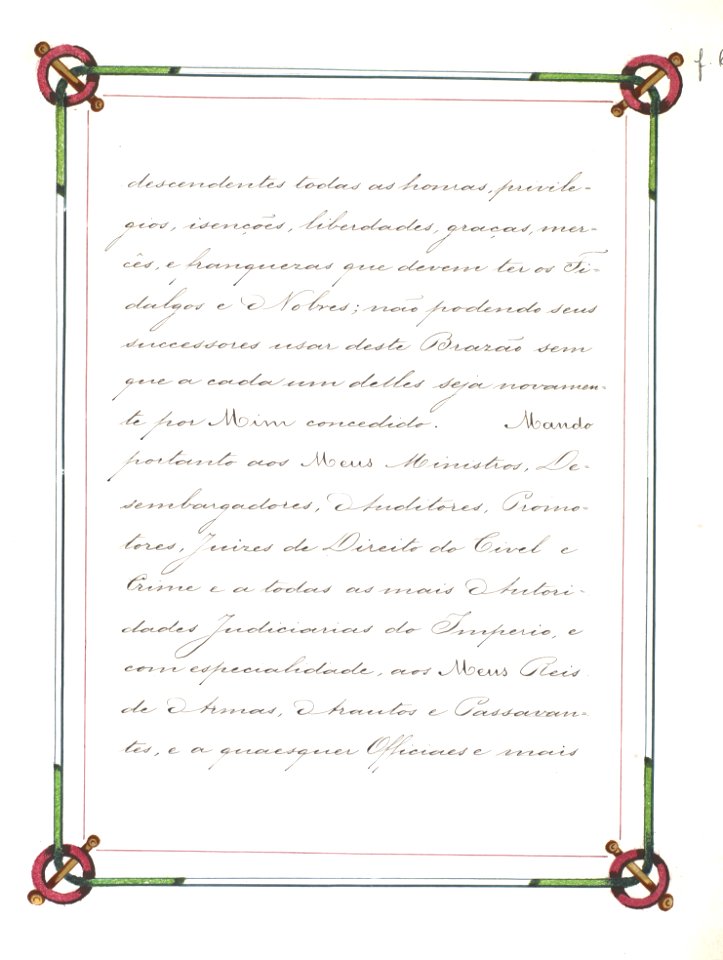 f. 6
descendentes todas as honras, privile-
gios, isenções, liberdades, graças, mer-
cês, e franquezas que devem ter os Fi-
dalgos e Nobres; não podendo seus
successores usar deste Brazão sem
que a cada um delles seja novamen-
te por Mim concedido. Mando
portanto aos Meus Ministros, De-
sembargadores, Auditores, Promo-
tores, Juizes de Direito do Civel e
Crime e a todas as mais Autori-
dades Judiciarias do Imperio, e
com especialidade, aos Meus Reis
de Armas, Arautos e Passavan-
tes, e a quaesquer Officiaes e mais